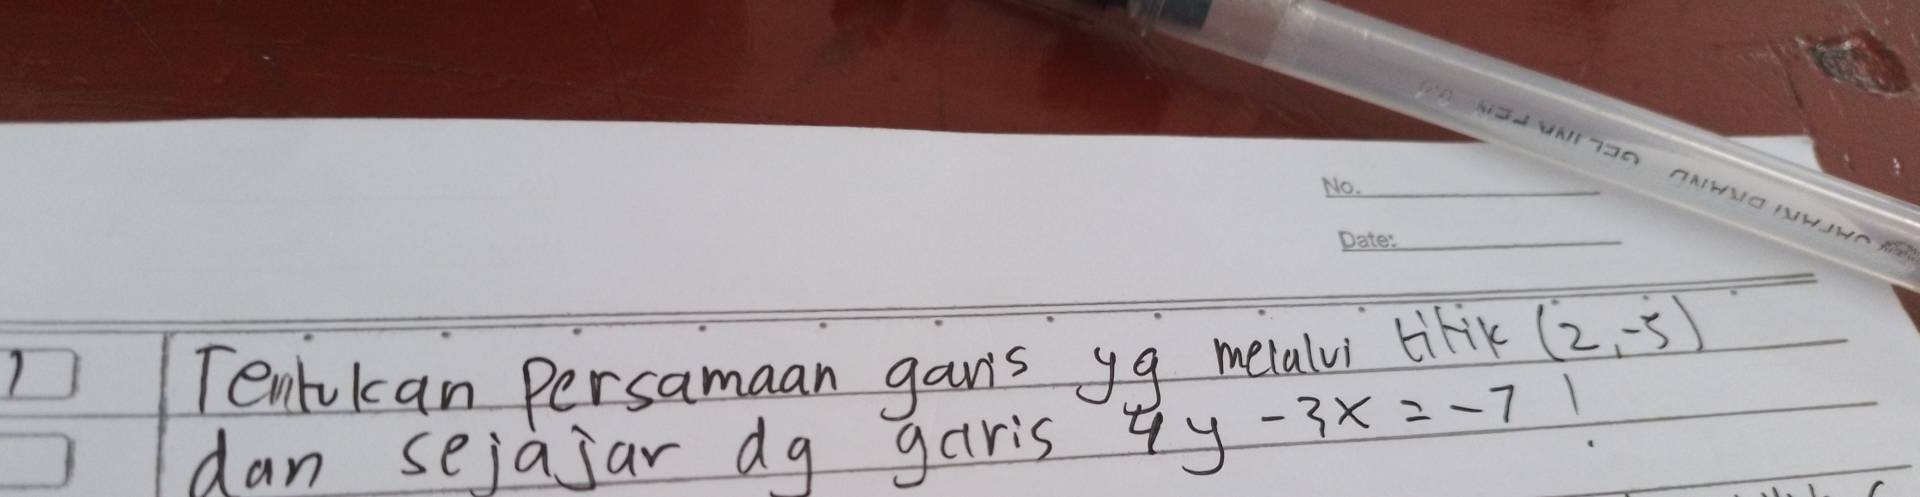 GEL INK PEN
No.
Date:
1
Tentukan Persamaan garis yg melalui titik (2,-5)
dan sejajar dg garis 4y -3x = -7 !